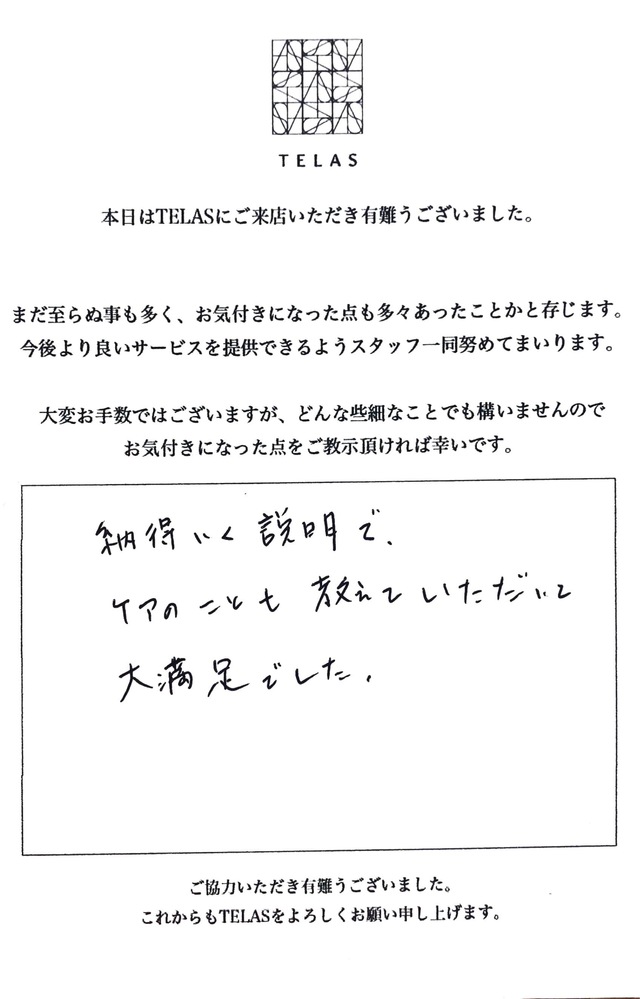 TELAS
本日はTELASにご来店いただき有難うございました。
まだ至らぬ事も多く、お気付きになった点も多々あったことかと存じます。
今後より良いサービスを提供できるようスタッフ一同努めてまいります。
大変お手数ではございますが、どんな些細なことでも構いませんので
お気付きになった点をご教示頂ければ幸いです。
納得いく説明で、
ケアのことも教えていただいて
大満足でした。
ご協力いただき有難うございました。
これからもTELASをよろしくお願い申し上げます。